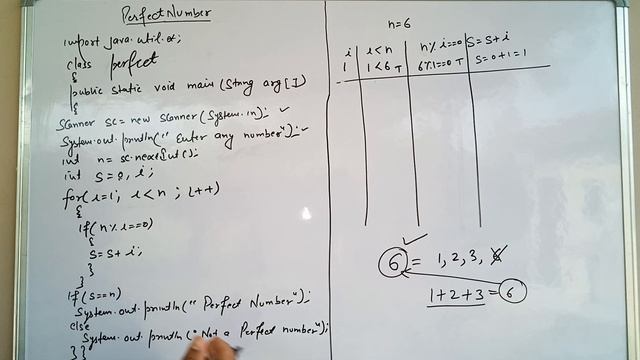 Perfect Number
import java.util.*;
class perfect
{
public static void main (String arg[])
{
Scanner sc = new Scanner (System.in);
System.out.println(" Enter any number");
int n = sc.nextInt();
int s = 0, i;
for(i=1; i<n ; i++)
{
if(n%i==0)
{
s = s+i;
}
}
if (s==n)
System.out.println(" Perfect Number");
else
System.out.println(" Not a Perfect number");
} }
n=6
i i<n n%i==0 S=S+i
1 1<6 T 6%1==0 T S=0+1=1
6 = 1, 2, 3, 6
1+2+3 = 6